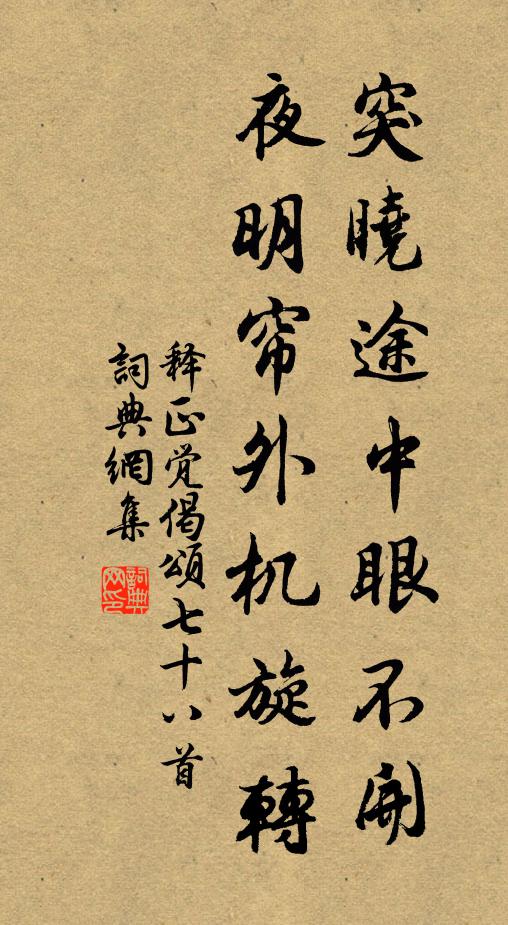 突曉途中眼不開
夜明帘外机旋轉
释正覚偈頌七十八首
詞典網集
詞典網印